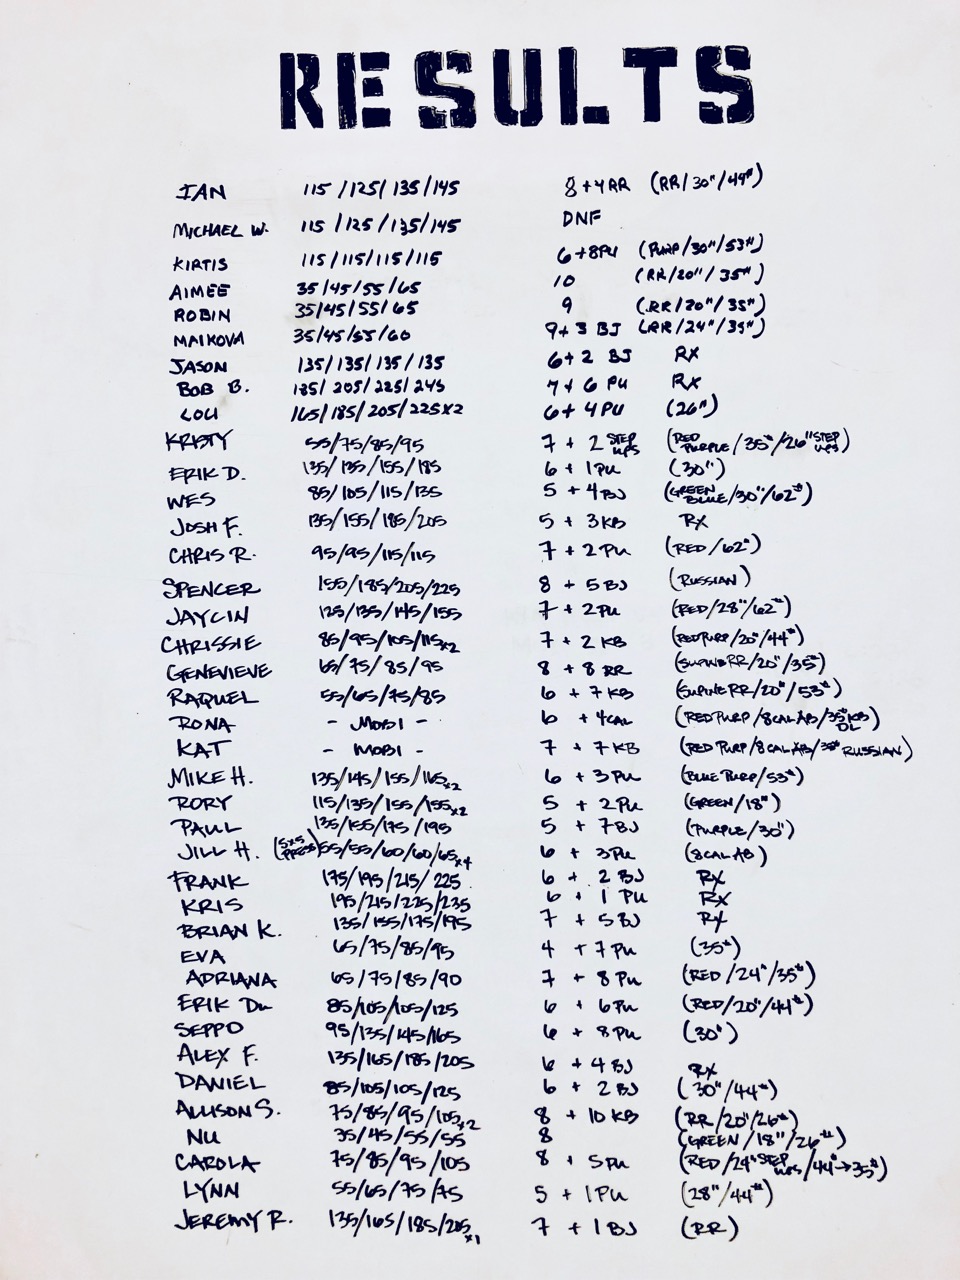 RESULTS
IAN 115/125/135/145 8+4RR (RR/30"/44#)
MICHAEL W. 115/125/135/145 DNF
KIRTIS 115/115/115/115 6+8PU (PURP/30"/53#)
AIMEE 35/45/55/65 10 (RR/20"/35#)
ROBIN 35/45/55/65 9 (RR/20"/35#)
MAIKOVA 35/45/55/60 9+3 BJ (RR/24"/35#)
JASON 135/135/135/135 6+2 BJ RX
BOB B. 185/205/225/245 7+6 PU RX
LOU 165/185/205/225x2 6+4PU (26")
KRISTY 55/75/85/95 7+2 STEP UPS (RED PURPLE/35#/26" STEP UPS)
ERIK D. 135/135/155/185 6+1PU (30")
WES 85/105/115/135 5+4BJ (GREEN BLUE/30"/62#)
JOSH F. 135/155/185/205 5+3KB RX
CHRIS R. 95/95/115/115 7+2PU (RED/62#)
SPENCER 155/185/205/225 8+5BJ (RUSSIAN)
JAYCIN 125/135/145/155 7+2PU (RED/28"/62#)
CHRISSIE 85/95/105/115x2 7+2 KB (RED PURP/20"/44#)
GENEVIEVE 65/75/85/95 8+8 RR (SUPINE RR/20"/35#)
RAQUEL 55/65/75/85 6+7KB (SUPINE RR/20"/53#)
RONA - MOBI - 6+4CAL (RED PURP/8CAL AB/35# KB DL)
KAT - MOBI - 7+7KB (RED PURP/8CAL AB/35# RUSSIAN)
MIKE H. 135/145/155/165x2 6+3PU (BLUE PURP/53#)
RORY 115/135/155/155x2 5+2PU (GREEN/18")
PAUL 135/155/175/195 5+7BJ (PURPLE/30")
JILL H. (5x5 PRESS) 55/55/60/60/65x4 6+3PU (8CAL AB)
FRANK 175/195/215/225 6+2 BJ RX
KRIS 195/215/225/235 6+1 PU RX
BRIAN K. 135/155/175/195 7+5BJ RX
EVA 65/75/85/95 4+7PU (35#)
ADRIANA 65/75/85/90 7+8PU (RED/24"/35#)
ERIK Du 85/105/105/125 6+6PU (RED/20"/44#)
SEPPO 95/135/145/165 6+8PU (30")
ALEX F. 135/165/185/205 6+4BJ RX
DANIEL 85/105/105/125 6+2BJ (30"/44#)
ALLISON S. 75/85/95/105x2 8+10 KB (RR/20"/26#)
NU 35/45/55/55 8 (GREEN/18"/26#)
CAROLA 75/85/95/105 8+5PU (RED/24" STEP UPS/44#→35#)
LYNN 55/65/75/75 5+1PU (28"/44#)
JEREMY R. 135/165/185/205x1 7+1BJ (RR)